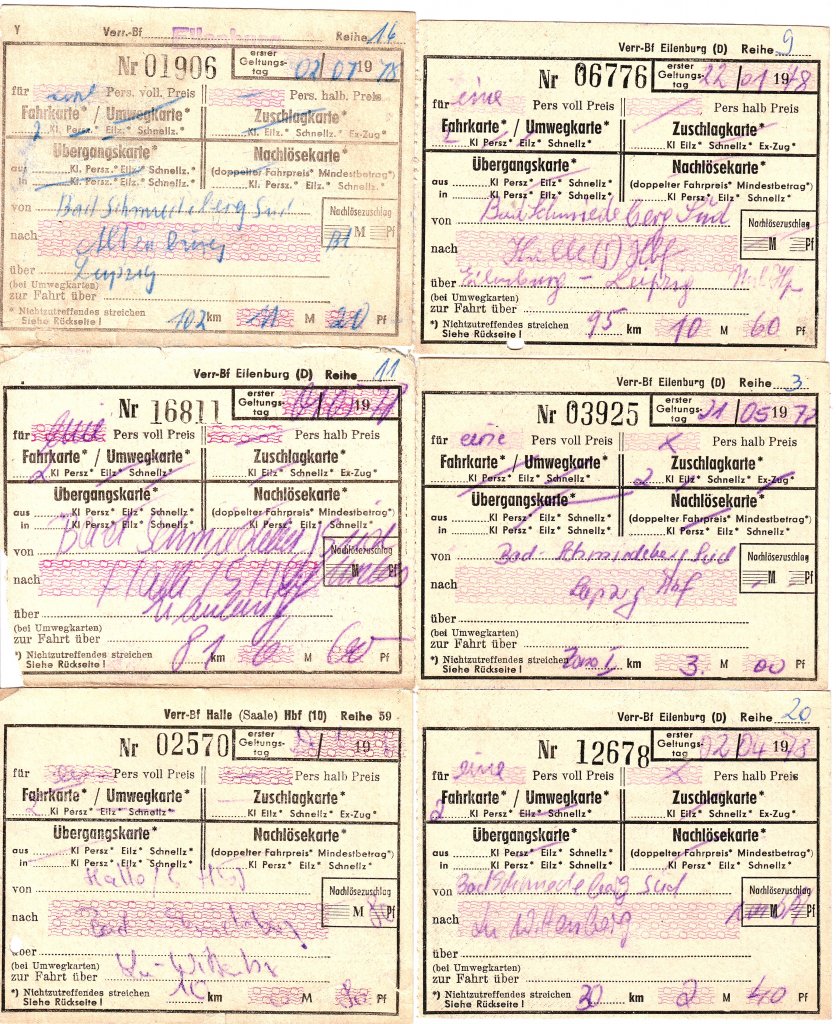 Y Verr.-Bf Eilenburg Reihe 16
Nr 01906 erster Geltungs-tag 02 01 1978
für eine Pers. voll. Preis Pers. halb. Preis
Fahrkarte* / Umwegkarte* Zuschlagkarte*
2 Kl. Persz.* Eilz.* Schnellz.* Kl. Eilz.* Schnellz.* Ex-Zug*
Übergangskarte* Nachlösekarte*
aus Kl. Persz.* Eilz.* Schnellz.* (doppelter Fahrpreis* Mindestbetrag*)
in Kl. Persz.* Eilz.* Schnellz.* Kl. Persz.* Eilz.* Schnellz.*
von Bad Schmiedeberg Süd Nachlösezuschlag
nach Altenburg M Pf
über Leipzig
(bei Umwegkarten)
zur Fahrt über
*) Nichtzutreffendes streichen
Siehe Rückseite! 102 km 11 M 20 Pf
Verr-Bf Eilenburg (D) Reihe 9
Nr 06776 erster Geltungs-tag 22 01 1978
für eine Pers voll Preis Pers halb Preis
Fahrkarte* / Umwegkarte* Zuschlagkarte*
2 Kl Persz* Eilz* Schnellz* Kl Eilz* Schnellz* Ex-Zug*
Übergangskarte* Nachlösekarte*
aus Kl Persz* Eilz* Schnellz* (doppelter Fahrpreis* Mindestbetrag*)
in Kl Persz* Eilz* Schnellz* Kl Persz* Eilz* Schnellz*
von Bad Schmiedeberg Süd Nachlösezuschlag
nach Halle (S) Hbf M Pf
über Eilenburg - Leipzig
(bei Umwegkarten)
zur Fahrt über
*) Nichtzutreffendes streichen
Siehe Rückseite! 95 km 10 M 60 Pf
Verr-Bf Eilenburg (D) Reihe 11
Nr 16811 erster Geltungs-tag 19
für eine Pers voll Preis Pers halb Preis
Fahrkarte* / Umwegkarte* Zuschlagkarte*
2 Kl Persz* Eilz* Schnellz* Kl Eilz* Schnellz* Ex-Zug*
Übergangskarte* Nachlösekarte*
aus Kl Persz* Eilz* Schnellz* (doppelter Fahrpreis* Mindestbetrag*)
in Kl Persz* Eilz* Schnellz* Kl Persz* Eilz* Schnellz*
von Bad Schmiedeberg Süd Nachlösezuschlag
nach Halle (S) Hbf M Pf
über Eilenburg
(bei Umwegkarten)
zur Fahrt über
*) Nichtzutreffendes streichen
Siehe Rückseite! 81 km 6 M 60 Pf
Verr-Bf Eilenburg (D) Reihe 3
Nr 03925 erster Geltungs-tag 21 05 197
für eine Pers voll Preis x Pers halb Preis
Fahrkarte* / Umwegkarte* Zuschlagkarte*
Kl Persz* Eilz* Schnellz* 2 Kl Eilz* Schnellz* Ex-Zug*
Übergangskarte* Nachlösekarte*
aus Kl Persz* Eilz* Schnellz* (doppelter Fahrpreis* Mindestbetrag*)
in Kl Persz* Eilz* Schnellz* Kl Persz* Eilz* Schnellz*
von Bad Schmiedeberg Süd Nachlösezuschlag
nach Leipzig Hbf M Pf
über
(bei Umwegkarten)
zur Fahrt über
*) Nichtzutreffendes streichen
Siehe Rückseite! Zone I km 3. M 00 Pf
Verr-Bf Halle (Saale) Hbf (10) Reihe 59
Nr 02570 erster Geltungs-tag 19
für Pers voll Preis Pers halb Preis
Fahrkarte* / Umwegkarte* Zuschlagkarte*
2 Kl Persz* Eilz* Schnellz* Kl Eilz* Schnellz* Ex-Zug*
Übergangskarte* Nachlösekarte*
aus Kl Persz* Eilz* Schnellz* (doppelter Fahrpreis* Mindestbetrag*)
in Kl Persz* Eilz* Schnellz* Kl Persz* Eilz* Schnellz*
von Halle/S Hbf Nachlösezuschlag
nach Bad M Pf
über
(bei Umwegkarten)
zur Fahrt über
*) Nichtzutreffendes streichen
Siehe Rückseite! km M 80 Pf
Verr-Bf Eilenburg (D) Reihe 20
Nr 12678 erster Geltungs-tag 02 04 1973
für eine Pers voll Preis x Pers halb Preis
Fahrkarte* / Umwegkarte* Zuschlagkarte*
2 Kl Persz* Eilz* Schnellz* Kl Eilz* Schnellz* Ex-Zug*
Übergangskarte* Nachlösekarte*
aus Kl Persz* Eilz* Schnellz* (doppelter Fahrpreis* Mindestbetrag*)
in Kl Persz* Eilz* Schnellz* Kl Persz* Eilz* Schnellz*
von Bad Schmiedeberg Süd Nachlösezuschlag
nach Lu Wittenberg M Pf
über
(bei Umwegkarten)
zur Fahrt über
*) Nichtzutreffendes streichen
Siehe Rückseite! 30 km 2 M 40 Pf